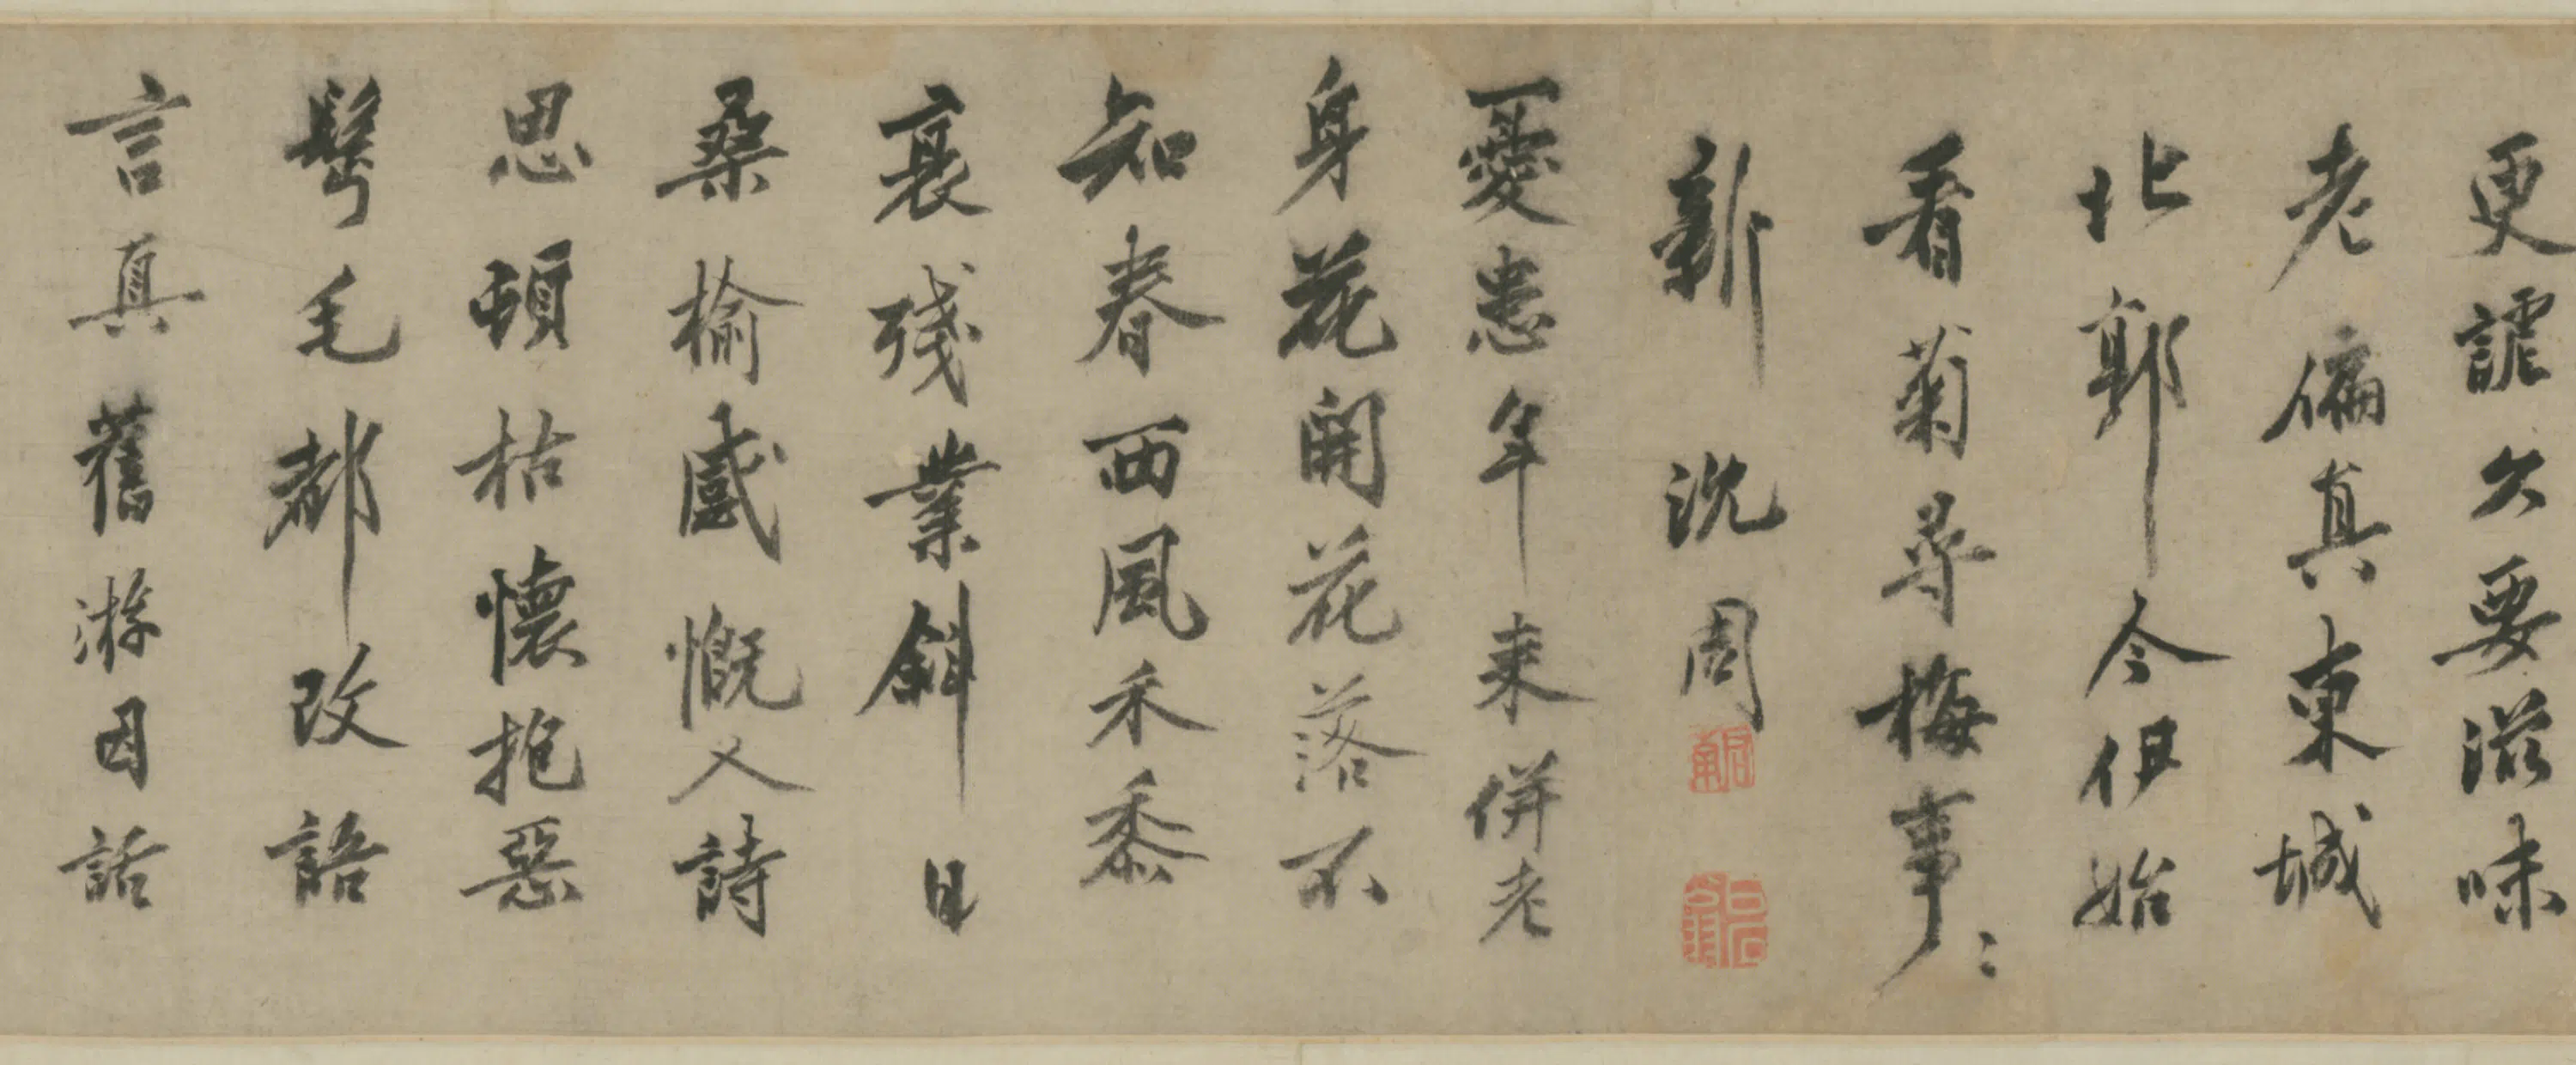 更謔久要滋味
老偏真東城
北郭今伊始
看菊尋梅事〻
新 沈周
憂患年来併老
身花開花落不
知春西風禾黍
衰殘業斜日
桑榆感慨人詩
思頓枯懷抱惡
髩毛都改語
言真舊游因話